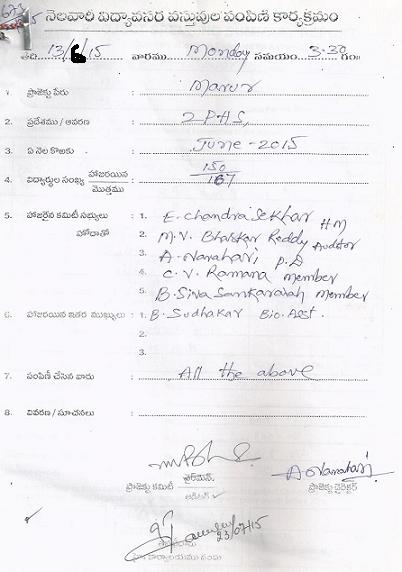 నెలవారి విద్యావసర వస్తువుల పంపిణీ కార్యక్రమం
తేది. 13/6/15 వారము Monday సమయం 3.30 గం॥
1. ప్రాజెక్టు పేరు : Marur
2. ప్రదేశము / ఆవరణ : ZPHS,
3. ఏ నెల కొఱకు : June - 2015
4. విద్యార్థుల సంఖ్య హాజరయిన / మొత్తము : 150 / 167
5. హాజరైన కమిటీ సభ్యులు : 1. E. Chandra Sekhar HM
హోదాతో 2. M.V. Bhaskar Reddy Auditor
3. A. Narahari P.D
4. C.V. Ramana Member
5. B. Siva Sankaraiah Member
6. హాజరయిన ఇతర ముఖ్యులు : 1. B. Sudhakar Bio. Asst.
2.
3.
7. పంపిణీ చేసిన వారు : All the above
8. వివరణ / సూచనలు :
ఛైర్మెన్, A. Narahari
ప్రాజెక్టు కమిటీ ఆడిటర్ ✓ ప్రాజెక్టు డైరెక్టర్
23/07/15